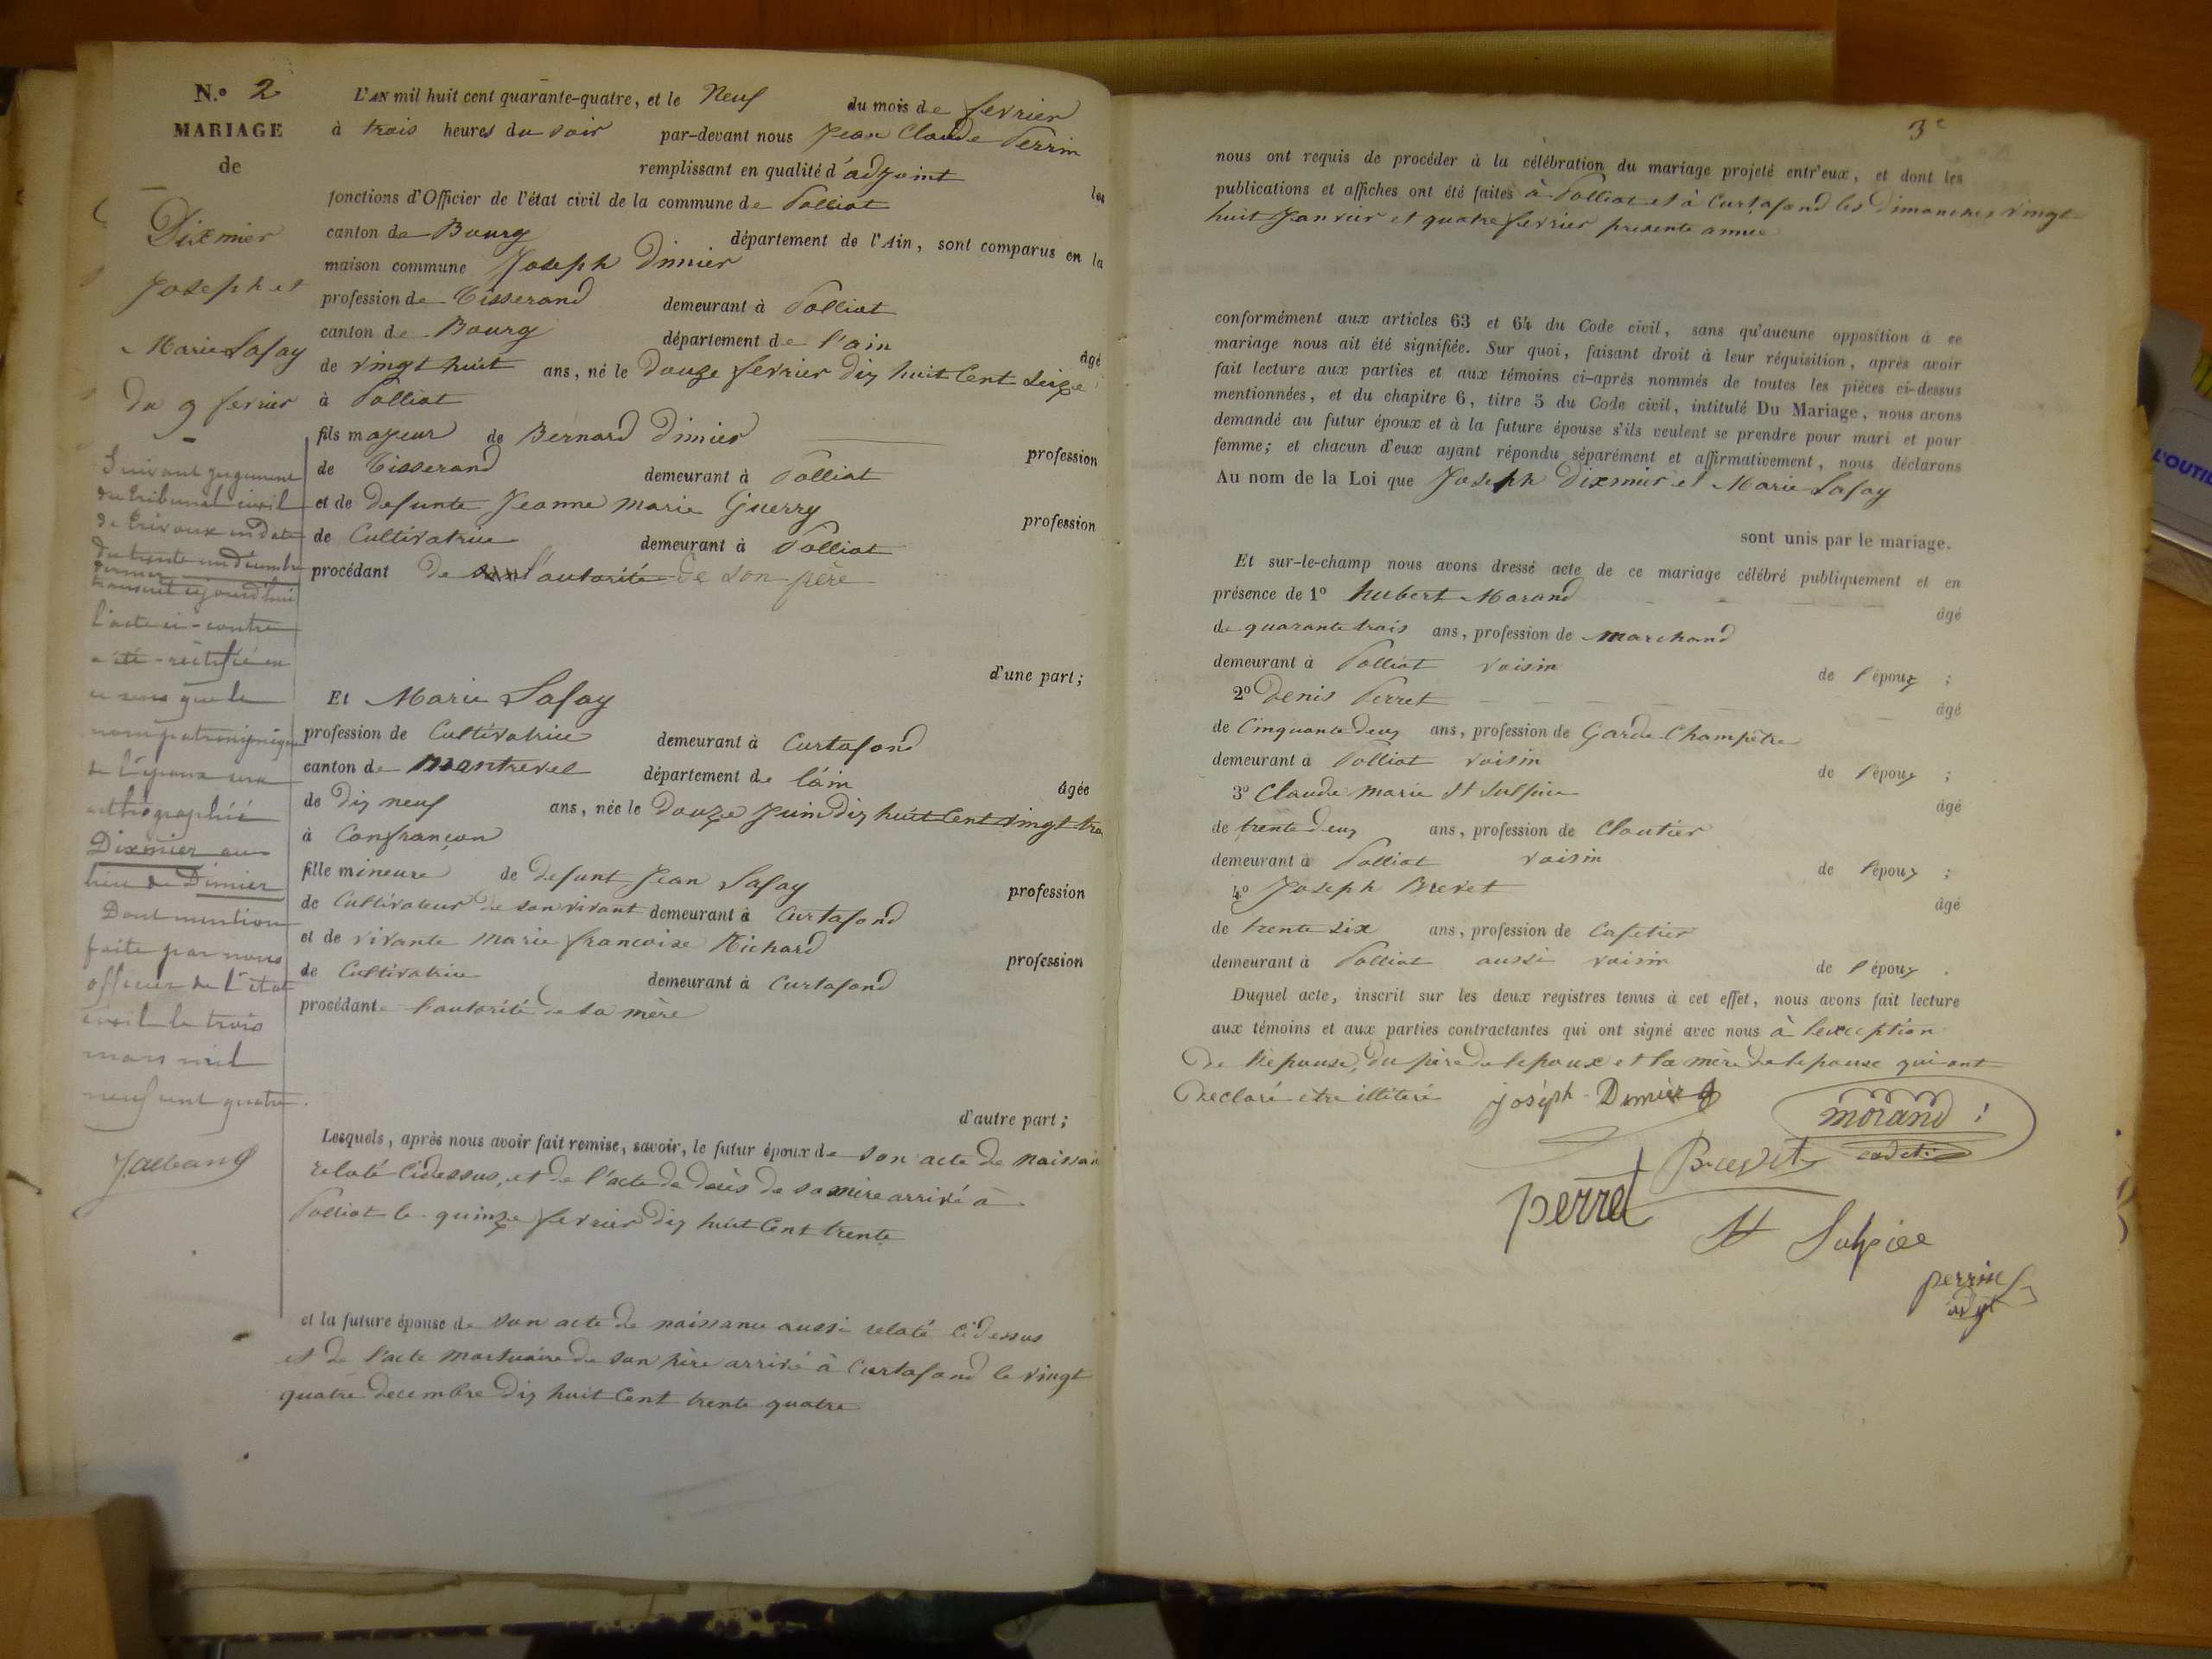 N.º 2
MARIAGE
de
Dixmier
Joseph et
Marie Lafay
du 9 fevrier
Suivant jugement
du tribunal civil
de Trévoux en date
du trente un Decembre
dernier
transcrit aujourd'hui
l'acte ci-contre
a été rectifié en
ce sens que le
nom patronymique
de l'époux sera
orthographié
Dixmier au
lieu de Dimier
Dont mention
faite par nous
officier de l'état
civil le trois
mars mil
neuf cent quatre.
L'AN mil huit cent quarante-quatre, et le Neuf du mois de fevrier
à trois heures du soir par-devant nous Jean Claude Perrin
remplissant en qualité d'adjoint les
fonctions d'Officier de l'état civil de la commune de Polliat
canton de Bourg département de l'Ain, sont comparus en la
maison commune Joseph Dimier
profession de Tisserand demeurant à Polliat
canton de Bourg département de l'ain âgé
de vingt huit ans, né le Douze fevrier dix huit Cent Seize
à Polliat
fils majeur de Bernard Dimier profession
de Tisserand demeurant à Polliat
et de defunte Jeanne Marie Guerry profession
de Cultivatrice demeurant à Polliat
procédant de l'autorité de son père
d'une part;
Et Marie Lafay
profession de Cultivatrice demeurant à Curtafond
canton de Montrevel département de l'ain âgée
de dix neuf ans, née le Douze Juin dix huit Cent vingt tro
à Confrançon
fille mineure de defunt Jean Lafay profession
de Cultivateur de son vivant demeurant à Curtafond
et de vivante Marie françoise Michard profession
de Cultivatrice demeurant à Curtafond
procédant l'autorité de sa mère
d'autre part;
Lesquels, après nous avoir fait remise, savoir, le futur époux de son acte de naissan
relaté cidessus, et de l'acte de décès de sa mère arrivé à
Polliat le quinze fevrier dix huit Cent trente
et la future épouse de son acte de naissance aussi relaté cidessus
et de l'acte mortuaire de son père arrivé à Curtafond le vingt
quatre decembre dix huit Cent trente quatre
3e
nous ont requis de procéder à la célébration du mariage projeté entr'eux, et dont les
publications et affiches ont été faites à Polliat et à Curtafond les dimanches vingt
huit Janvier et quatre fevrier presente année
conformément aux articles 63 et 64 du Code civil, sans qu'aucune opposition à ce
mariage nous ait été signifiée. Sur quoi, faisant droit à leur réquisition, après avoir
fait lecture aux parties et aux témoins ci-après nommés de toutes les pièces ci-dessus
mentionnées, et du chapitre 6, titre 5 du Code civil, intitulé Du Mariage, nous avons
demandé au futur époux et à la future épouse s'ils veulent se prendre pour mari et pour
femme; et chacun d'eux ayant répondu séparément et affirmativement, nous déclarons
Au nom de la Loi que Joseph Dixmier et Marie Lafay
sont unis par le mariage.
Et sur-le-champ nous avons dressé acte de ce mariage célébré publiquement et en
présence de 1º hubert Morand âgé
de quarante trois ans, profession de marchand
demeurant à Polliat voisin de l'époux ;
2º Denis Perret âgé
de Cinquante deux ans, profession de Garde Champêtre
demeurant à Polliat voisin de l'époux ;
3º Claude Marie St Sulpice âgé
de trente deux ans, profession de Cloutier
demeurant à Polliat voisin de l'époux ;
4º Joseph Brevet âgé
de trente six ans, profession de Cafetier
demeurant à Polliat aussi voisin de l'époux .
Duquel acte, inscrit sur les deux registres tenus à cet effet, nous avons fait lecture
aux témoins et aux parties contractantes qui ont signé avec nous à l'exception
de l'épouse, du père de lepoux et la mère de lepouse qui ont
declaré etre illitéré joséph Dimièr
morand
cadet
Brevet
perret
St Sulpice
perrin
adjt
L'OUTIL